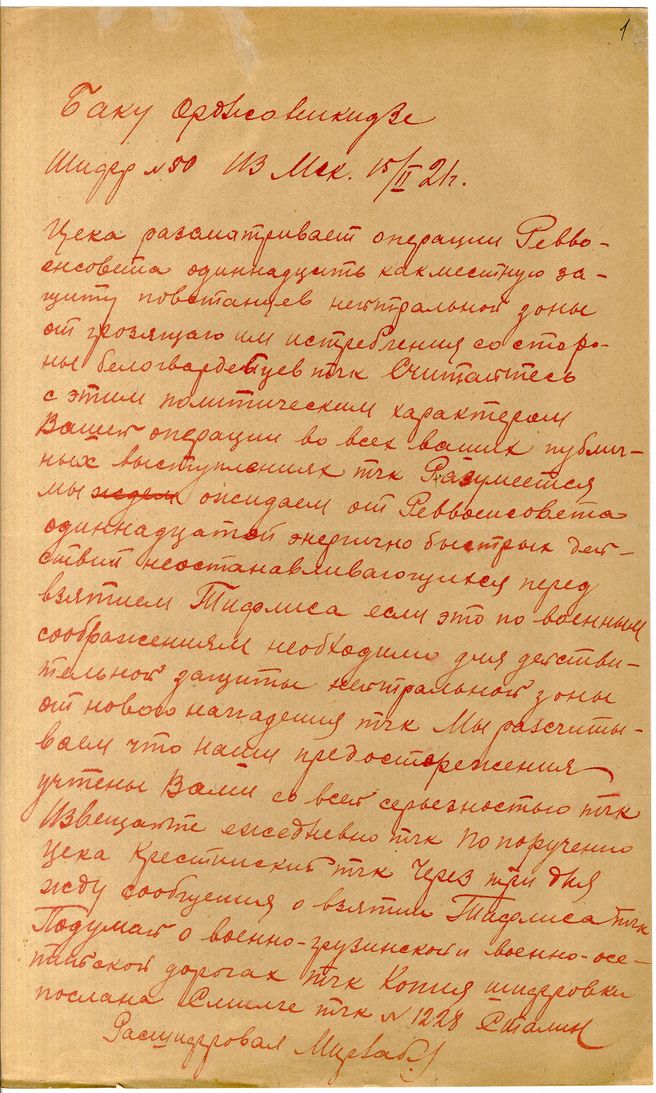 1
Баку Орджоникидзе
Шифр №50 Из Мск. 15/II 21г.
Цека разсматривает операции Ревво-
енсовета одиннадцать как местную за-
щиту повстанцев нейтральной зоны
от грозящаго им истребления со сторо-
ны белогвардейцев тчк Считайтесь
с этим политическим характером
Вашей операции во всех ваших публич-
ных выступлениях тчк Разумеется
мы ждем ожидаем от Реввоенсовета
одиннадцатой энергично быстрых дей-
ствий неостанавливающихся перед
взятием Тифлиса если это по военным
соображениям необходимо для действи-
тельной защиты нейтральной зоны
от нового нападения тчк Мы разсчиты-
ваем что наши предостережения
учтены Вами со всей серьезностью тчк
Извещайте ежедневно тчк По поручению
Цека Крестинский тчк Через три дня
жду сообщения о взятии Тифлиса тчк
Подумай о военно-грузинской и военно-осе-
тинской дорогах тчк Копия шифровки
послана Смилге тчк №1228 Сталин
Расшифровал